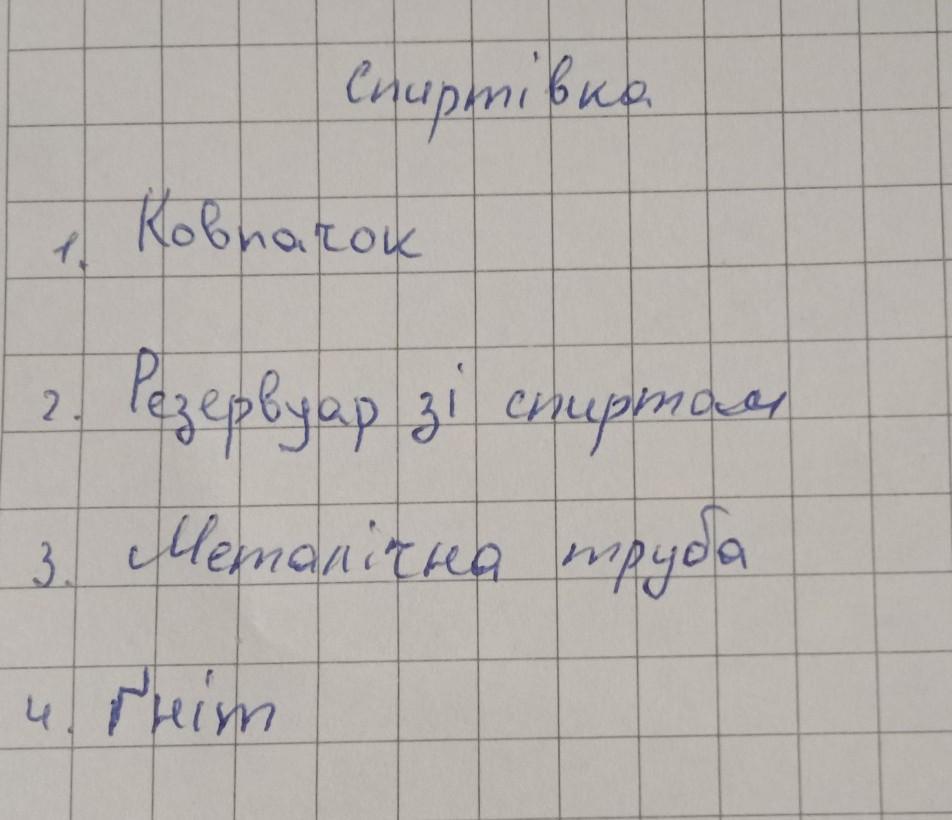 Спиртівка
1. Ковпачок
2. Резервуар зі спиртом
3. Металічна труба
4. Ґніт